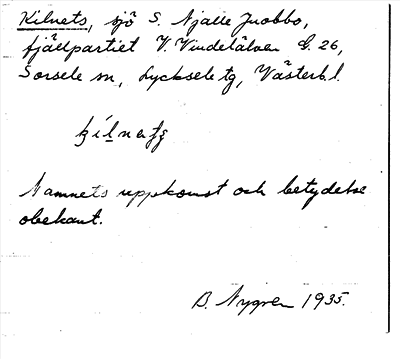 Kilnets, sjö S. Njalle Juobbo,
fjällpartiet V. Vindelälven G. 26,
Sorsele sn, Lycksele tg, Västerb. l.
Namnets uppkomst och betydelse
obekant.
B. Nygren 1935.